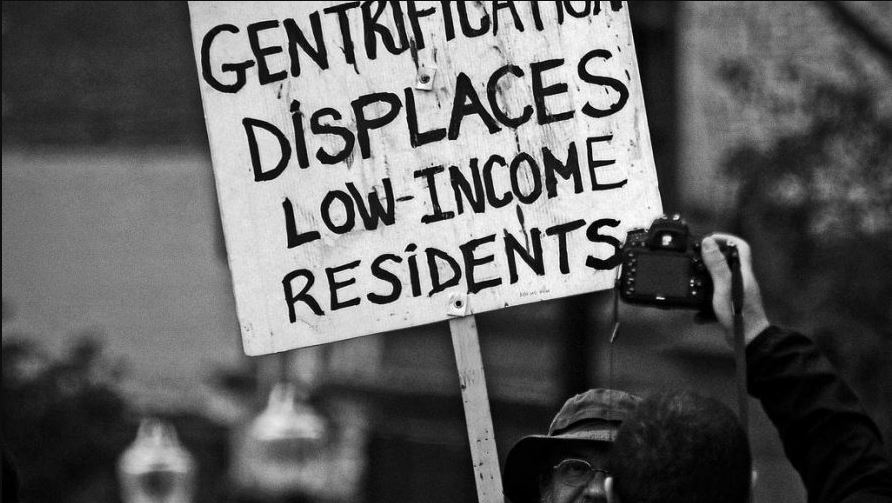 GENTRIFICATION
DiSPLACES
LOW-INCOME
RESiDENTS